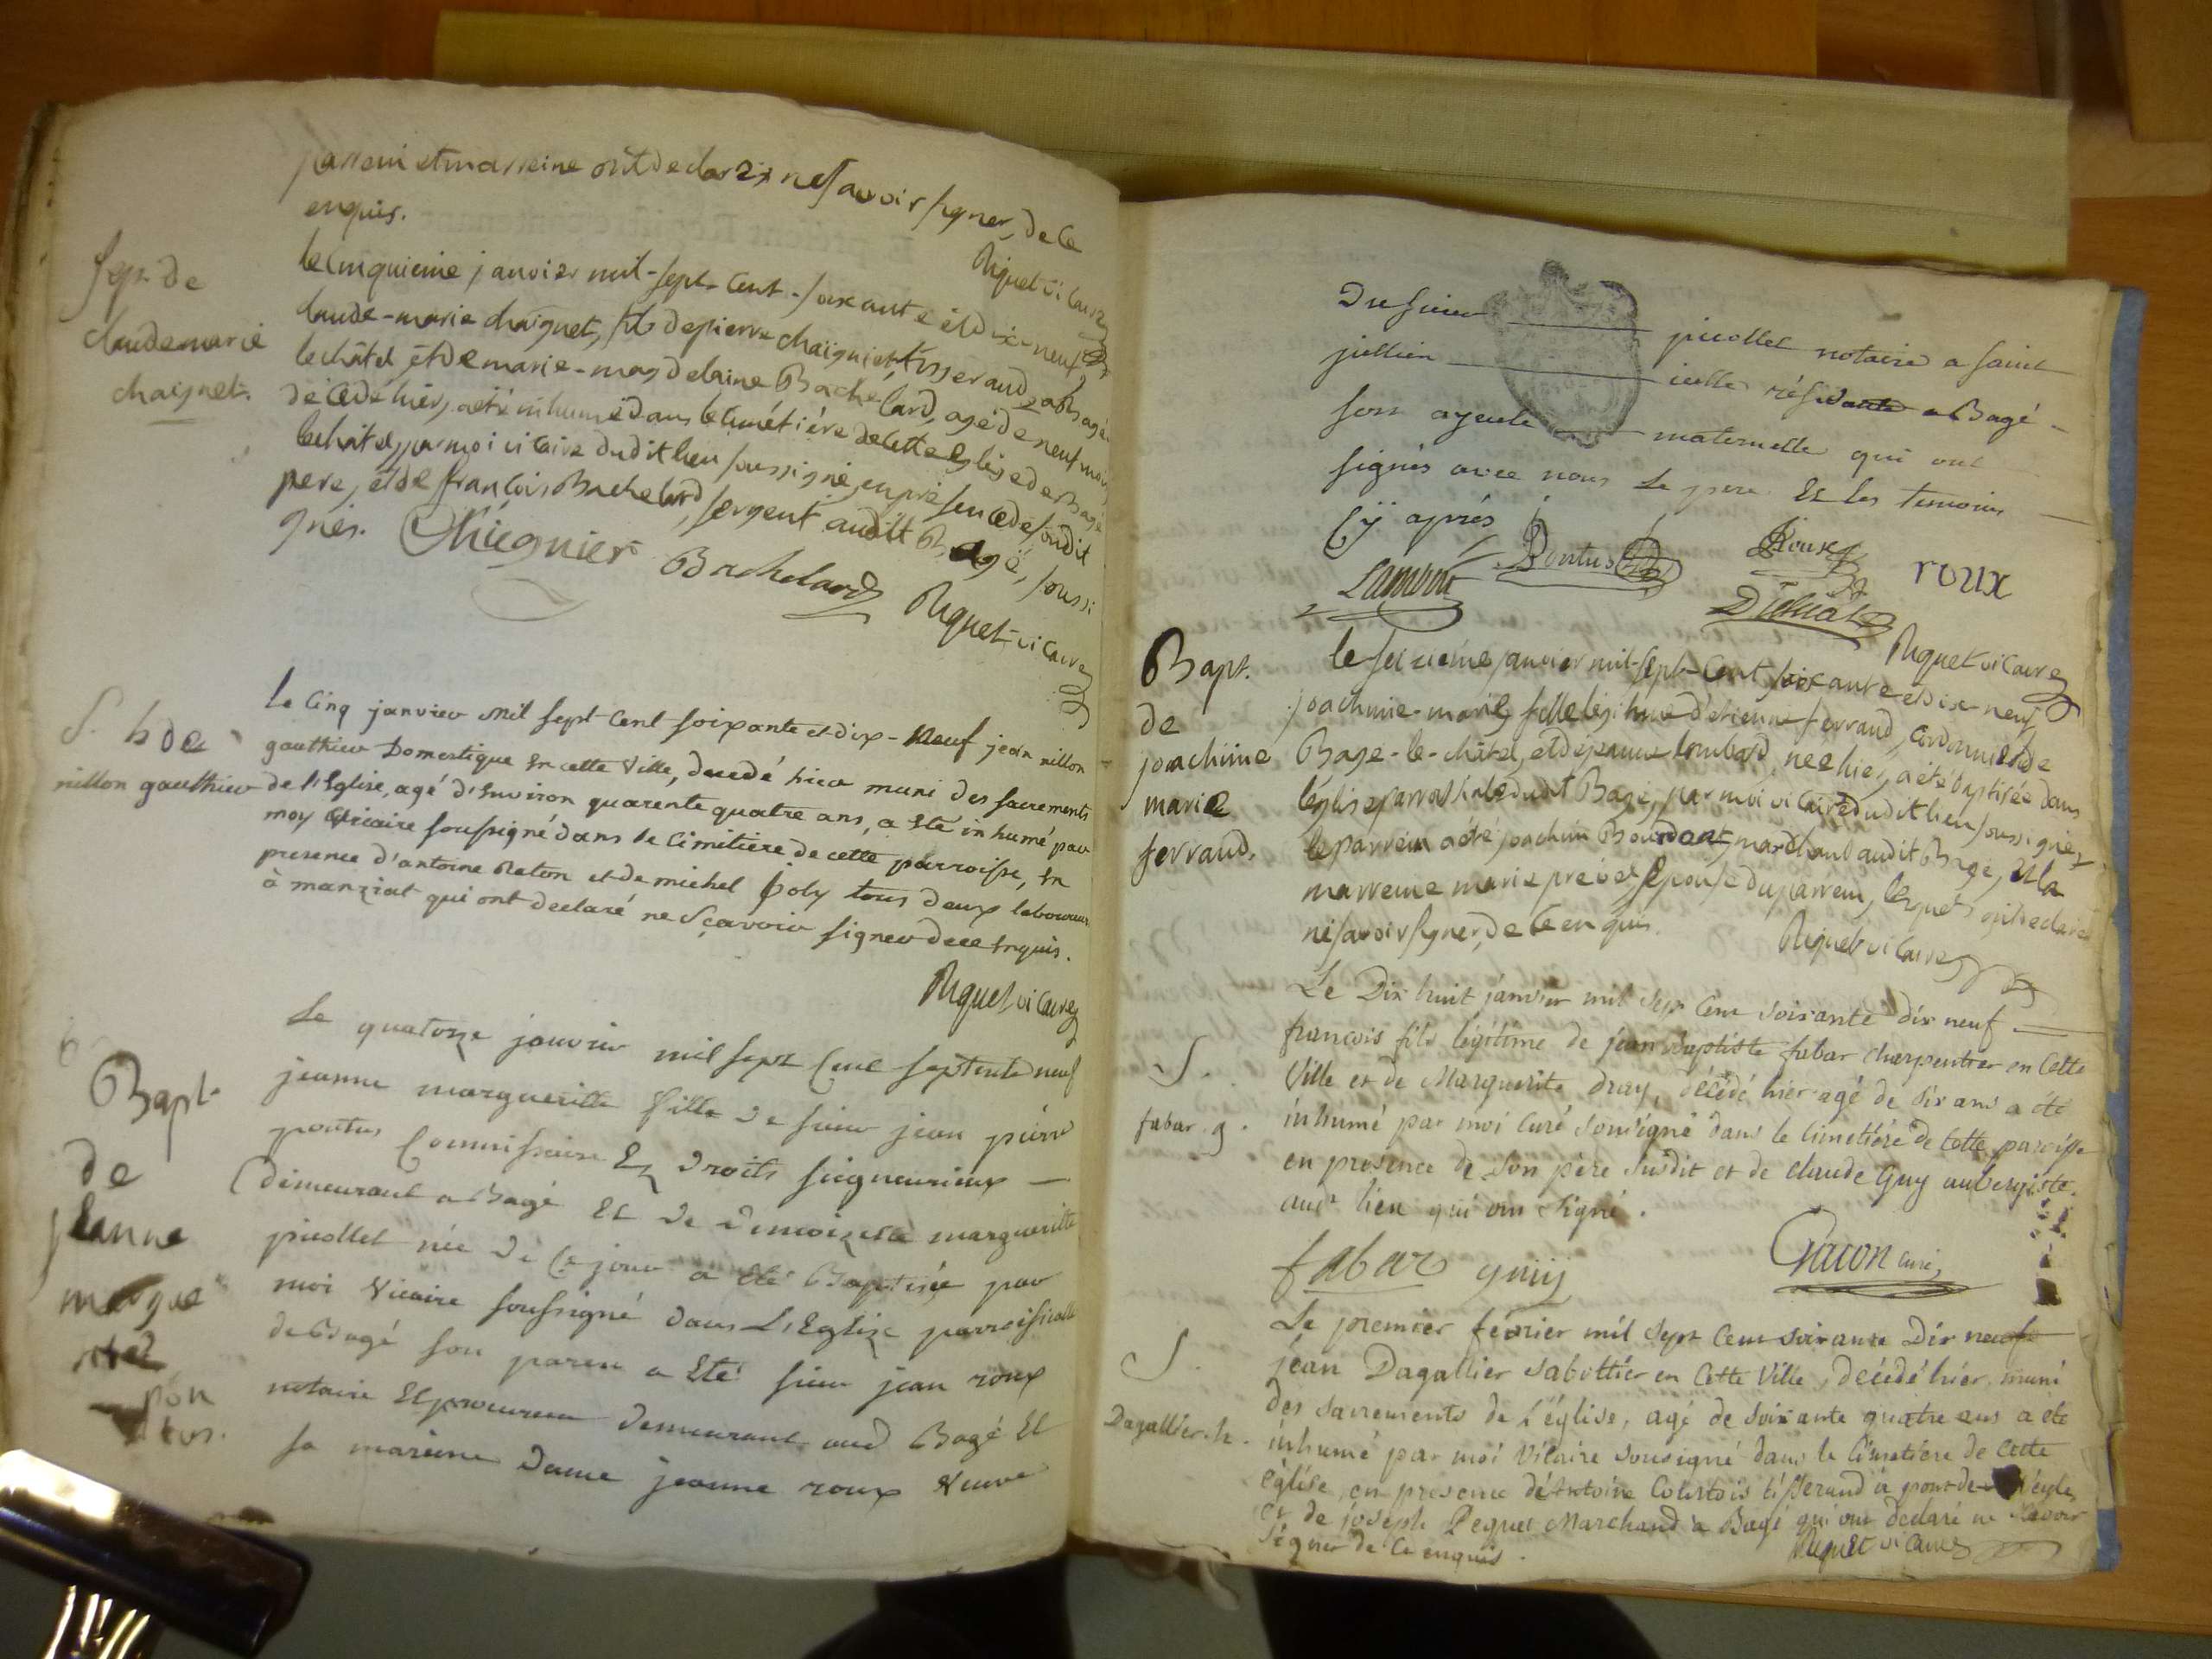 parrein et marreine ont declarez ne savoir signer, de ce
enquis.
Riquet vicaire
Sep. de
claude marie
chaignet.
le cinquieme janvier mil-sept-cent-soixante et dix-neuf
claude-marie chaignet, fils de pierre chaignier tisserand a Bagé
le châtel, et de marie-magdelaine Bachélard, agé de neuf mois
décédé hier, a été inhumé dans le cimétiére de cette eglise de Bagé
le châtel, par moi vicaire dudit lieu soussigné, en présence de sondit
pere, et de françois Bachelard, sergent audit Bagé, soussi
gnés. Chiegnier Bachelard Riquet vicaire
S. h de
nillon gauthier
Le Cinq janvier mil sept cent soixante et dix-neuf jean nillon
gauthier Domestique en cette Ville, decedé hier muni des sacrements
de l'Eglise, agé d'Environ quarente quatre ans, a Eté inhumé par
moy Vicaire soussigné dans le Cimitiere de cette parroisse, En
presence d'antoine Raton et de michel joly tous deux laboureurs
à manziat qui ont declaré ne Sçavoir signer de ce Enquis.
Riquet vicaire
Bapt.
de
jeanne
margue
rite
pon
tus.
Le quatorze janvier mil sept Cent septente neuf
jeanne margueritte fille de sieur jean pierre
pontus Commissaire Ez Droits seigneuriaux —
demeurant a Bagé Et de Demoizelle margueritte
picollet née de ce jour a Eté Baptisée par
moi Vicaire soussigné dans L'Eglize parroissialle
de Bagé son parein a Eté sieur jean roux
notaire Et procureur demeurant aud Bagé Et
sa mareine Dame jeanne roux Veuve
Du sieur — picollet notaire a saint
jullien — icelle résidante a Bagé —
son ayeule — maternelle qui ont
signés avec nous Le pere Et les temoins —
Cÿ aprés
Lambért Pontus Roux roux
Riquet vicaire
Bapt.
de
joachime
marie
ferraud.
le seizieme janvier mil-sept-cent soixante et dix-neuf
joachime-marie, fille légitime d'etienne ferraud, cordonnier de
Bage-le-châtel, et de jeanne lombard, née hier, a été baptisée dans
léglise parroissiale dudit Bagé, par moi vicaire dudit lieu soussigné,
le parrein a été joachim Bourdon, marchand audit Bagé, et la
marreine marie prevel, Epouse du parrein, lesquels ont declaré
ne savoir signer, de ce enquis.
Riquet vicaire
S.
fabar. g.
Le Dix huit janvier mil sept cent soixante dix neuf —
francois fils légitime de jean baptiste fabar charpentier en cette
Ville et de Marguerite druy, décédé hier agé de six ans a été
inhumé par moi Curé sousigné dans le cimetiére de cette paroisse
en presence de son père susdit et de claude Guy aubergiste.
audt lieu qui ont signé.
fabar guiy Gacon curé
S.
Dagallier. h.
Le premier février mil sept cent soixante Dix neuf
jean Dagallier sabottier en cette Ville, décédé hiér muni
des sacrements de l'église, agé de soixante quatre ans a été
inhumé par moi Vicaire sousigné dans le Cimetiere de cette
église, en presence d'Antoine Courtois tisserand à pont-de-Veyle,
et de joseph Peguet Marchand à Bagé qui ont declaré ne savoir
signer de ce enquis.
Riquet vicaire